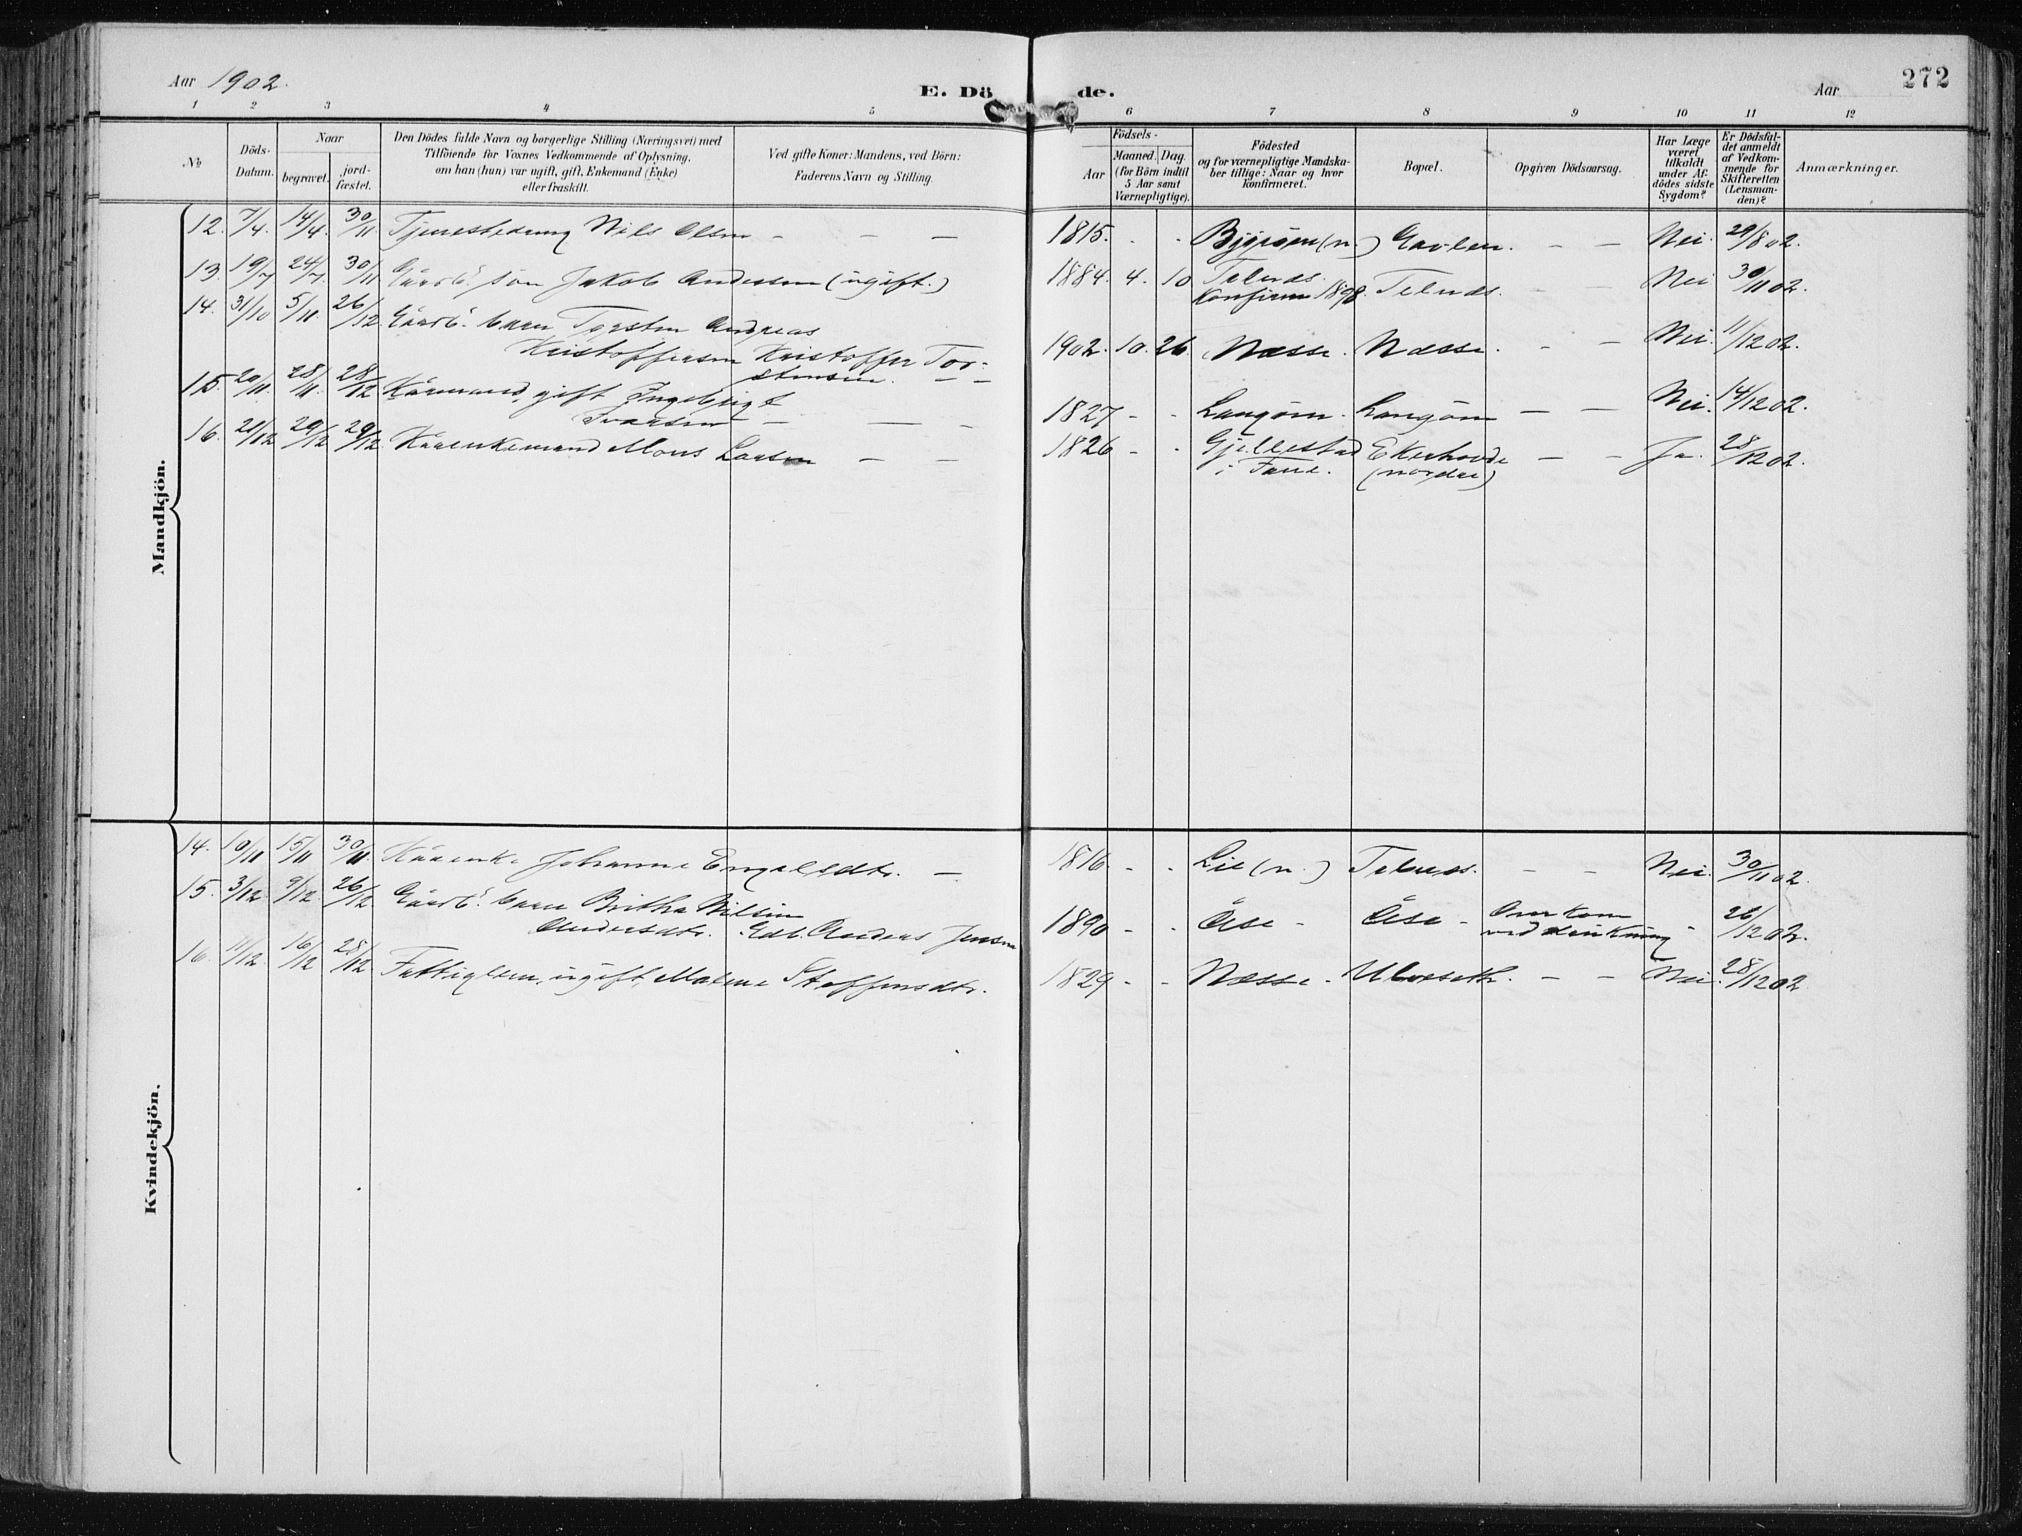 Aar 1902.
E. Dö de.
Aar
272
1 2 3 4 5 6 7 8 9 10 11 12
No
Döds-Datum.
Naar
begravet.
jord-fæstet.
Den Dödes fulde Navn og borgerlige Stilling (Næringsvei) med
Tilföiende for Voxnes Vedkommende af Oplysning,
om han (hun) var ugift, gift, Enkemand (Enke)
eller fraskilt.
Ved gifte Koner: Mandens, ved Börn:
Faderens Navn og Stilling.
Födsels-
Aar
Maaned. Dag.
(for Börn indtil
5 Aar samt
Værnepligtige).
Födested
og for værnepligtige Mandska-
ber tillige: Naar og hvor
Konfirmeret.
Bopæl.
Opgiven Dödsaarsag.
Har Læge
været
tilkaldt
under Af-
dödes sidste
Sygdom?
Er Dödsfal-
det anmeldt
af Vedkom-
mende for
Skifteretten
(Lensman-
den)?
Anmærkninger.
Mandkjön.
12. 7/4. 14/4. 30/11 Nils Olsen - - - 1815. - - (n.) - - Nei. 29/8 02.
13. 19/7 24/7. 30/11 Gaardb. søn Jakob Andersen (ugift.) 1884. 4. 10 Konfirm 1898. - - Nei 30/11 02.
14. 31/10 5/11. 26/12 Gaardb. barn Torsten Andreas
Kristoffersen Kristoffer Tor-
stensen. - - 1902. 10. 26 Næsse. Næsse. - - Nei. 11/12 02.
15. 20/11. 28/11. 28/12 Kaarmand, gift Ingebrigt
Ivarsen - - - 1827 - - - - Nei. 14/12 02.
16. 21/12. 29/12 29/12. Kaarenkemand Mons Larsen - - 1826 - - Gjellestad Ekerhovde - - Ja. 28/12 02.
i Fane. (nordre)
Kvindekjön.
14. 10/11 15/11 30/11. Kaarenke Johanne Engelsdtr. - 1816. - - Lie (n.) - - Nei. 30/11 02.
15. 3/12. 9/12. 26/12. Gaardb. barn Britha
Andersdtr. Gdb. Anders Jensen 1890 - - Aase - Aase - Omkom
ved - 26/12 02.
16. 11/12. 16/12 28/12 Fattiglem, ugift, Malene Steffensdtr. 1829 - - Næsse - Ulveseth. - - Nei. 28/12 02.